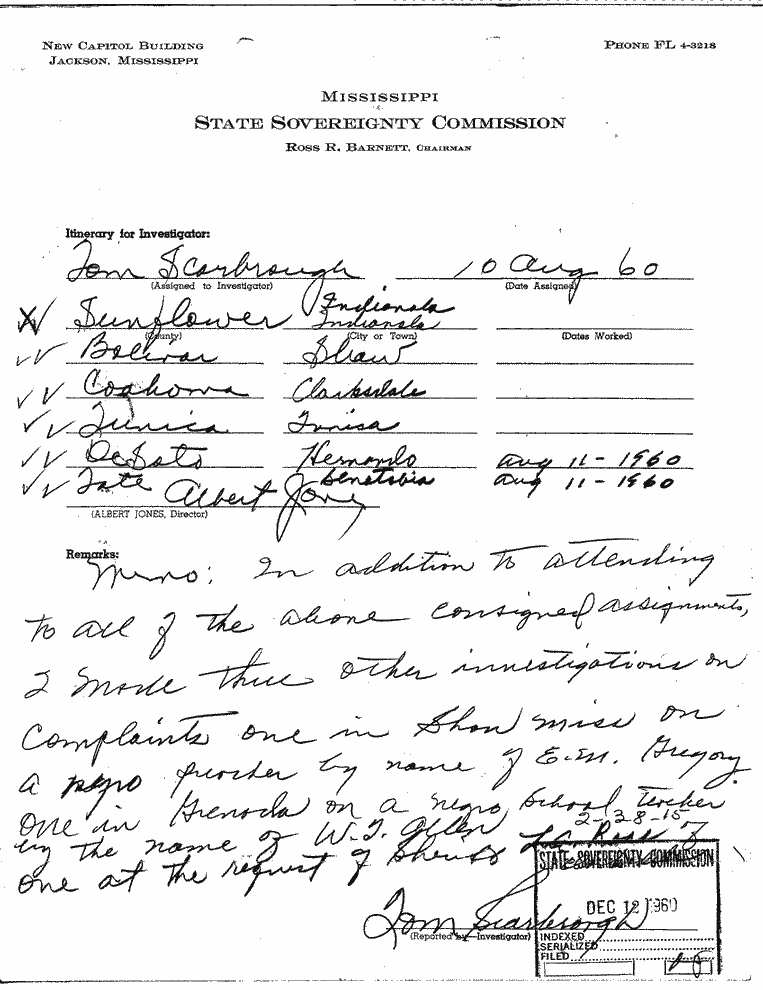 NEW CAPITOL BUILDING
JACKSON, MISSISSIPPI
PHONE FL 4-3218
MISSISSIPPI
STATE SOVEREIGNTY COMMISSION
ROSS R. BARNETT, CHAIRMAN
Itinerary for Investigator:
Tom Scarbrough 10 Aug 60
(Assigned to Investigator) (Date Assigned)
Indianola
Sunflower Indianola
(County) (City or Town) (Dates Worked)
Bolivar Shaw
Coahoma Clarksdale
Tunica Tunica
DeSoto Hernando Aug 11-1960
Tate Senatobia Aug 11-1960
Albert Jones
(ALBERT JONES, Director)
Remarks:
Memo: In addition to attending
to all of the above consigned assignments,
I made three other investigations on
complaints one in Shaw miss on
a negro preacher by name of E.M. Gregory
one in Grenada on a negro school teacher
2-38-15
by the name of W.T. Allen
one at the request of Sheriff
STATE SOVEREIGNTY COMMISSION
DEC 12 1960
Tom Scarbrough
(Reported by—Investigator)
INDEXED
SERIALIZED
FILED